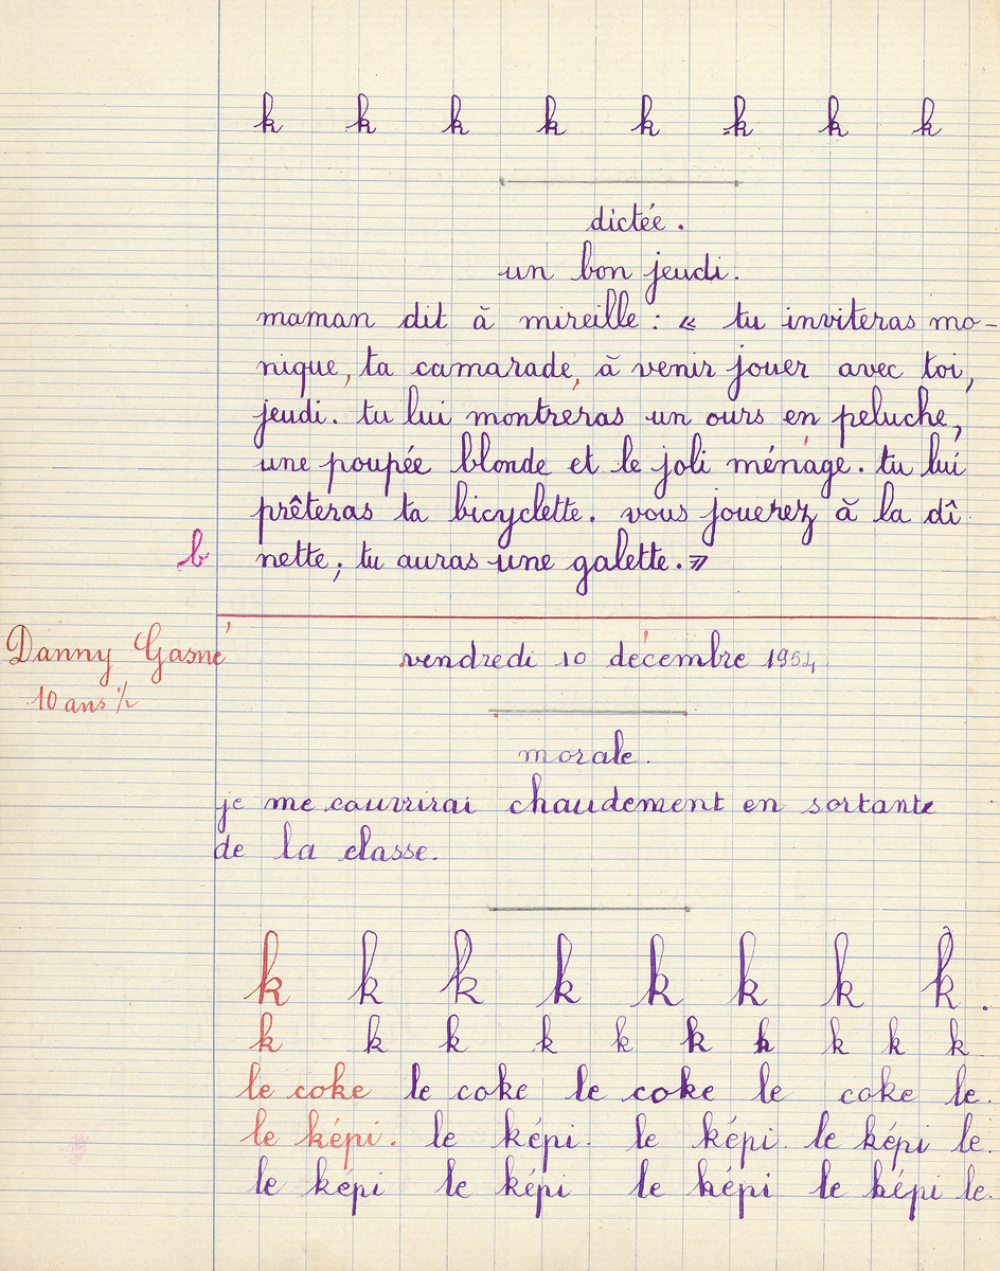 k k k k k k k k
dictée.
un bon jeudi.
maman dit à mireille : « tu inviteras mo-
nique, ta camarade, à venir jouer avec toi,
jeudi. tu lui montreras un ours en peluche,
une poupée blonde et le joli ménage. tu lui
prêteras ta bicyclette. vous jouerez à la dî
nette, tu auras une galette. »
b
Danny Gasné
10 ans 1/2
vendredi 10 décembre 1954
morale.
je me couvrirai chaudement en sortante
de la classe.
k k k k k k k k.
k k k k k k k k k k
le coke le coke le coke le coke le.
le képi. le képi. le képi. le képi le.
le képi le képi le képi le képi le.